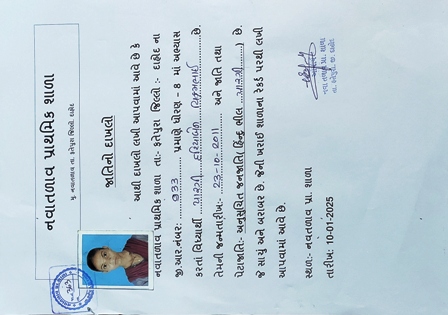 નવાતળાવ પ્રાથમિક શાળા
મુ. નવાતળાવ તા. ફતેપુરા જિ. દાહોદ
જાતિનો દાખલો
આથી દાખલો લખી આપવામાં આવે છે કે
નવાતળાવ પ્રાથમિક શાળા તા:- ફતેપુરા જિલ્લો :- દાહોદ ના
જી.આર.નંબર: 933 પ્રમાણે ધોરણ - 8 માં અભ્યાસ
કરતાં વિધ્યાર્થી પારગી છે.
તેમની જન્મતારીખ:- 23-10-2011 અને જાતિ તથા
પેટાજાતિ:- અનુસૂચિત જનજાતિ( હિન્દુ ભીલ પારગી ) છે.
જે સાચું અને બરાબર છે. જેની ખરાઈ શાળાના રેકર્ડ પરથી લખી
આપવામાં આવે છે.
સ્થળ:- નવાતળાવ પ્રા. શાળા
તારીખ: 10-01-2025
નવાતળાવ પ્રા. શાળા
તા. ફતેપુરા, જી. દાહોદ